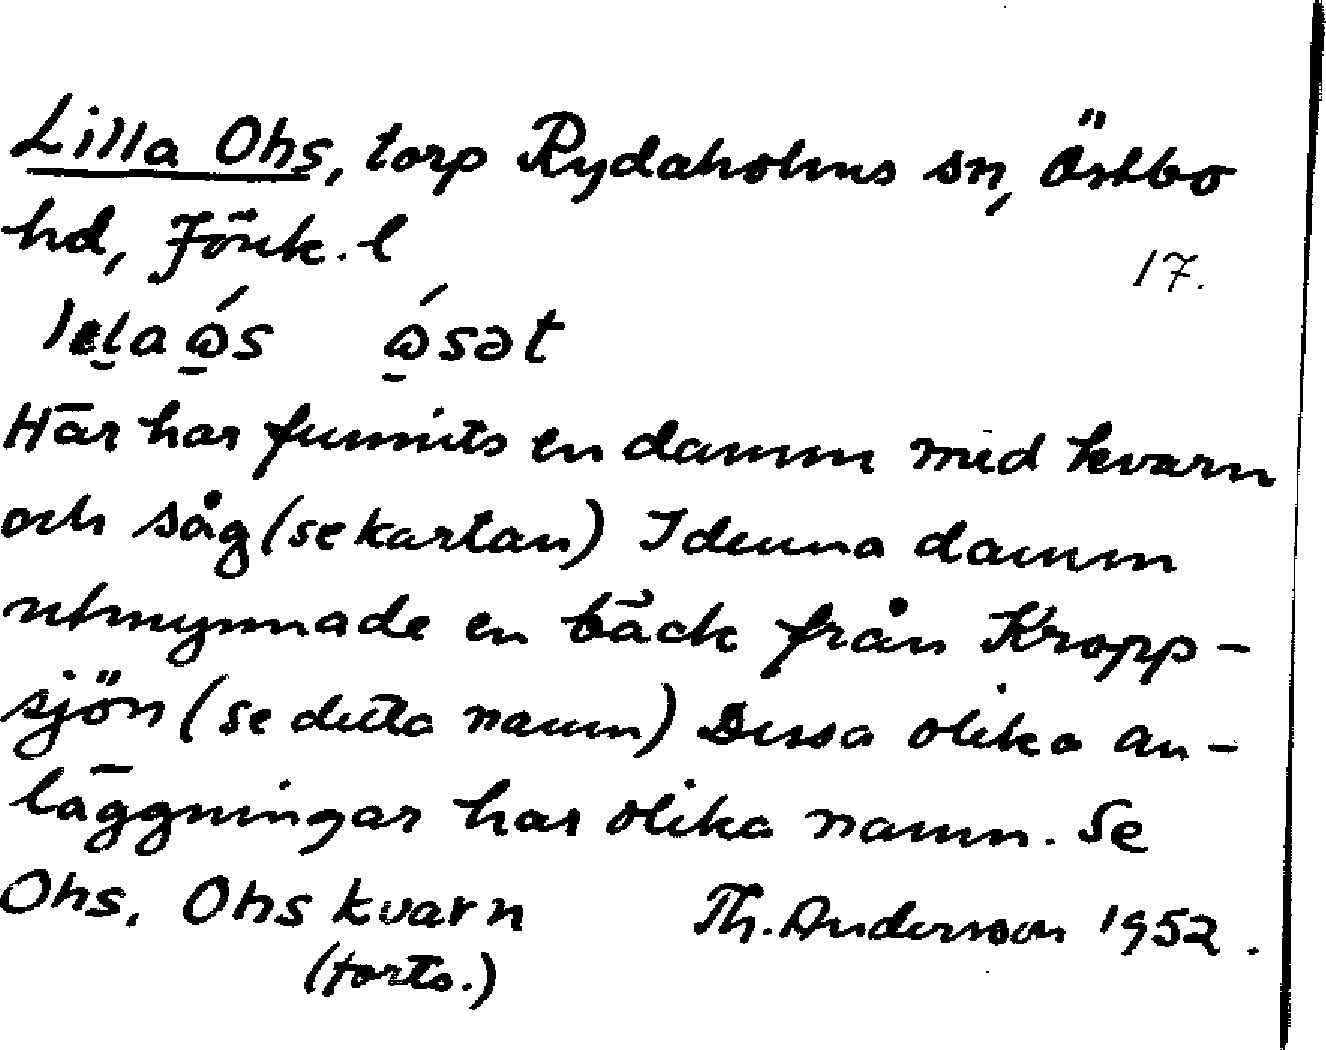 Lilla Ohs, torp Rydaholms sn, Östbo
hd, Jönk. l
17.
lelaɷ́s ɷ́sət
Här har funnits en damm med kvarn
och såg (se kartan) I denna damm
utmynnade en bäck från Kropp-
sjön (se detta namn) Dessa olika an-
läggningar har olika namn. Se
Ohs, Ohs kvarn Th. Andersson 1952.
(forts.)